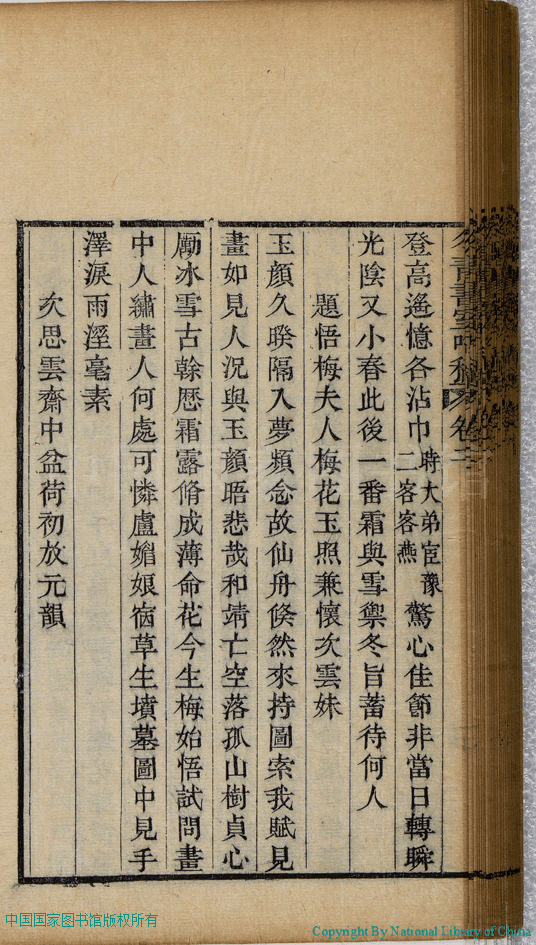 登高遙憶各沾巾時大弟宦豫二客客燕驚心佳節非當日轉瞬
光陰又小春此後一番霜與雪禦冬旨蓄待何人
題悟梅夫人梅花玉照兼懷次雲妹
玉顏久暌隔入夢頻念故仙舟倏然來持圖索我賦見
畫如見人況與玉顏晤悲哉和靖亡空落孤山樹貞心
勵冰雪古榦歷霜露脩成薄命花今生梅始悟試問畫
中人繡畫人何處可憐盧媚娘宿草生墳墓圖中見手
澤淚雨溼毫素
次思雲齋中盆荷初放元韻
卷二
中国国家图书馆版权所有
Copyright By National Library of China